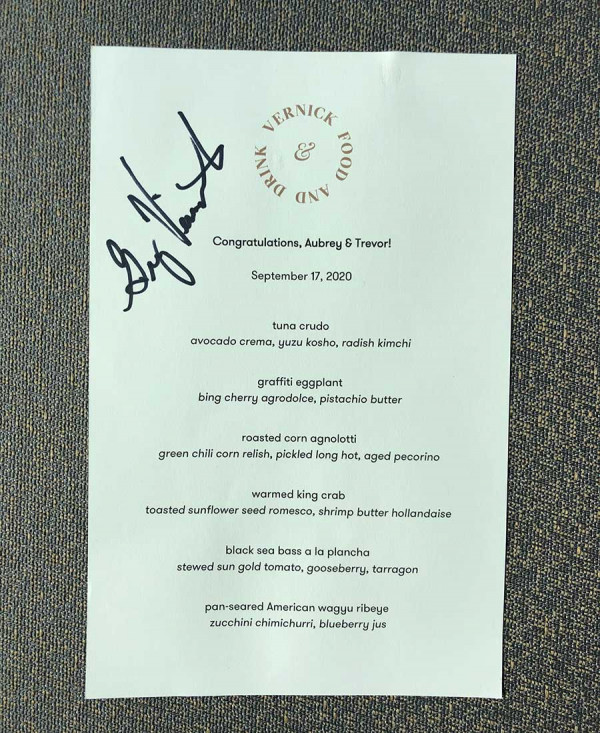 VERNICK FOOD AND DRINK
&
Greg Vernick
Congratulations, Aubrey & Trevor!
September 17, 2020
tuna crudo
avocado crema, yuzu kosho, radish kimchi
graffiti eggplant
bing cherry agrodolce, pistachio butter
roasted corn agnolotti
green chili corn relish, pickled long hot, aged pecorino
warmed king crab
toasted sunflower seed romesco, shrimp butter hollandaise
black sea bass a la plancha
stewed sun gold tomato, gooseberry, tarragon
pan-seared American wagyu ribeye
zucchini chimichurri, blueberry jus